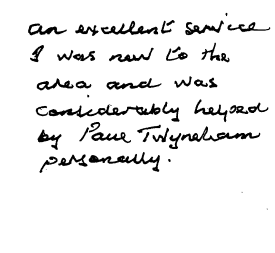 an excellent service
I was new to the
area and was
considerably helped
by Paul Twyneham
personally.